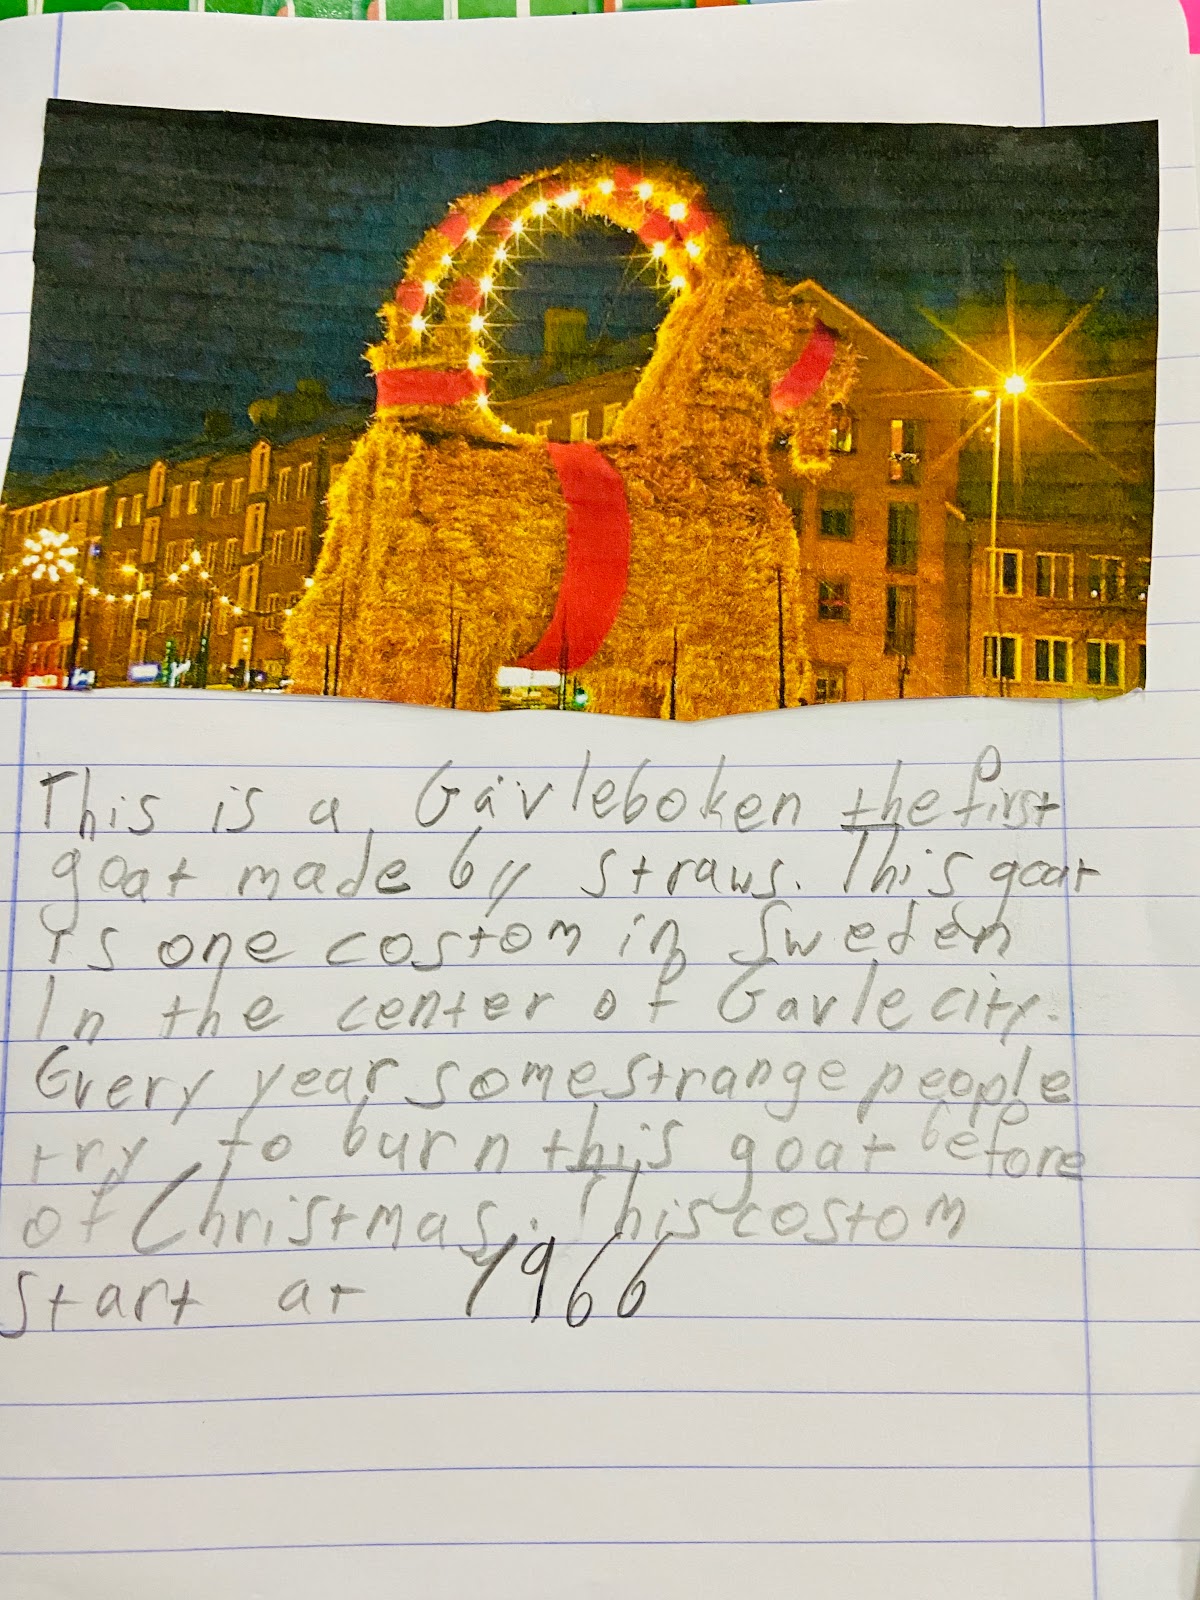 This is a Gävleboken the first
goat made by straws. This goat
is one costom in Sweden
In the center of Gavle city.
Every year some strange people
try to burn this goat before
of Christmas. This costom
start at 1966